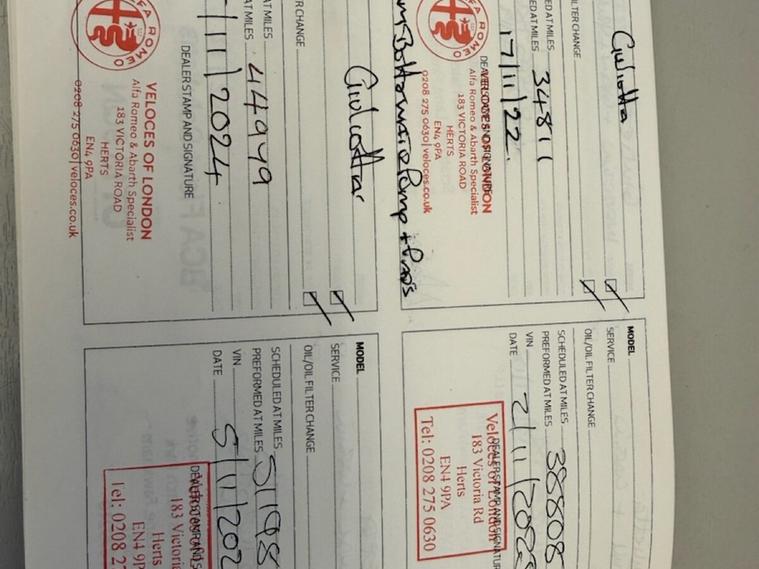 Giulietta
FILTER CHANGE
ED AT MILES
ED AT MILES 34811
17/11/22.
DEALER STAMP AND SIGNATURE
VELOCES OF LONDON
Alfa Romeo & Abarth Specialist
183 VICTORIA ROAD
HERTS
EN4 9PA
0208 275 0630 | veloces.co.uk
ALFA ROMEO
Pump +
MODEL
SERVICE
OIL/OIL FILTER CHANGE
SCHEDULED AT MILES
PREFORMED AT MILES 38808
VIN
DATE 2/11/202
DEALER STAMP AND SIGNATURE
Veloces of London
183 Victoria Rd
Herts
EN4 9PA
Tel: 0208 275 0630
Giulietta
FILTER CHANGE
AT MILES
AT MILES 44949
/11/2024
DEALER STAMP AND SIGNATURE
ALFA ROMEO
VELOCES OF LONDON
Alfa Romeo & Abarth Specialist
183 VICTORIA ROAD
HERTS
EN4 9PA
0208 275 0630 | veloces.co.uk
MODEL
SERVICE
OIL/OIL FILTER CHANGE
SCHEDULED AT MILES
PREFORMED AT MILES 51198
VIN
DATE 5/11/202
DEALER STAMP AND S
183 Victoria
Herts
EN4 9P
Tel: 0208 2